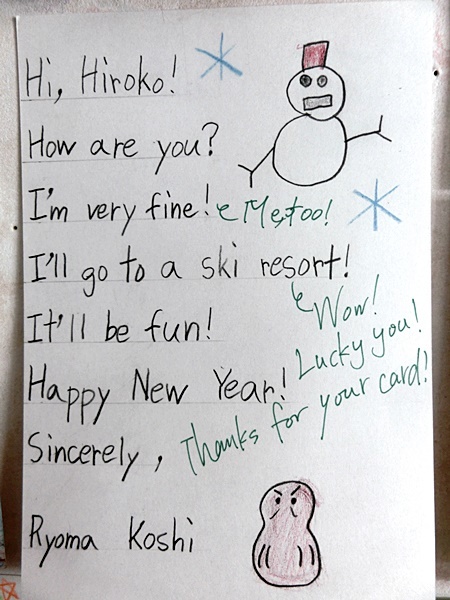 Hi, Hiroko!
How are you?
I'm very fine! Me, too!
I'll go to a ski resort!
Wow!
It'll be fun!
Lucky you!
Happy New Year!
Thanks for your card!
Sincerely,
Ryoma Koshi